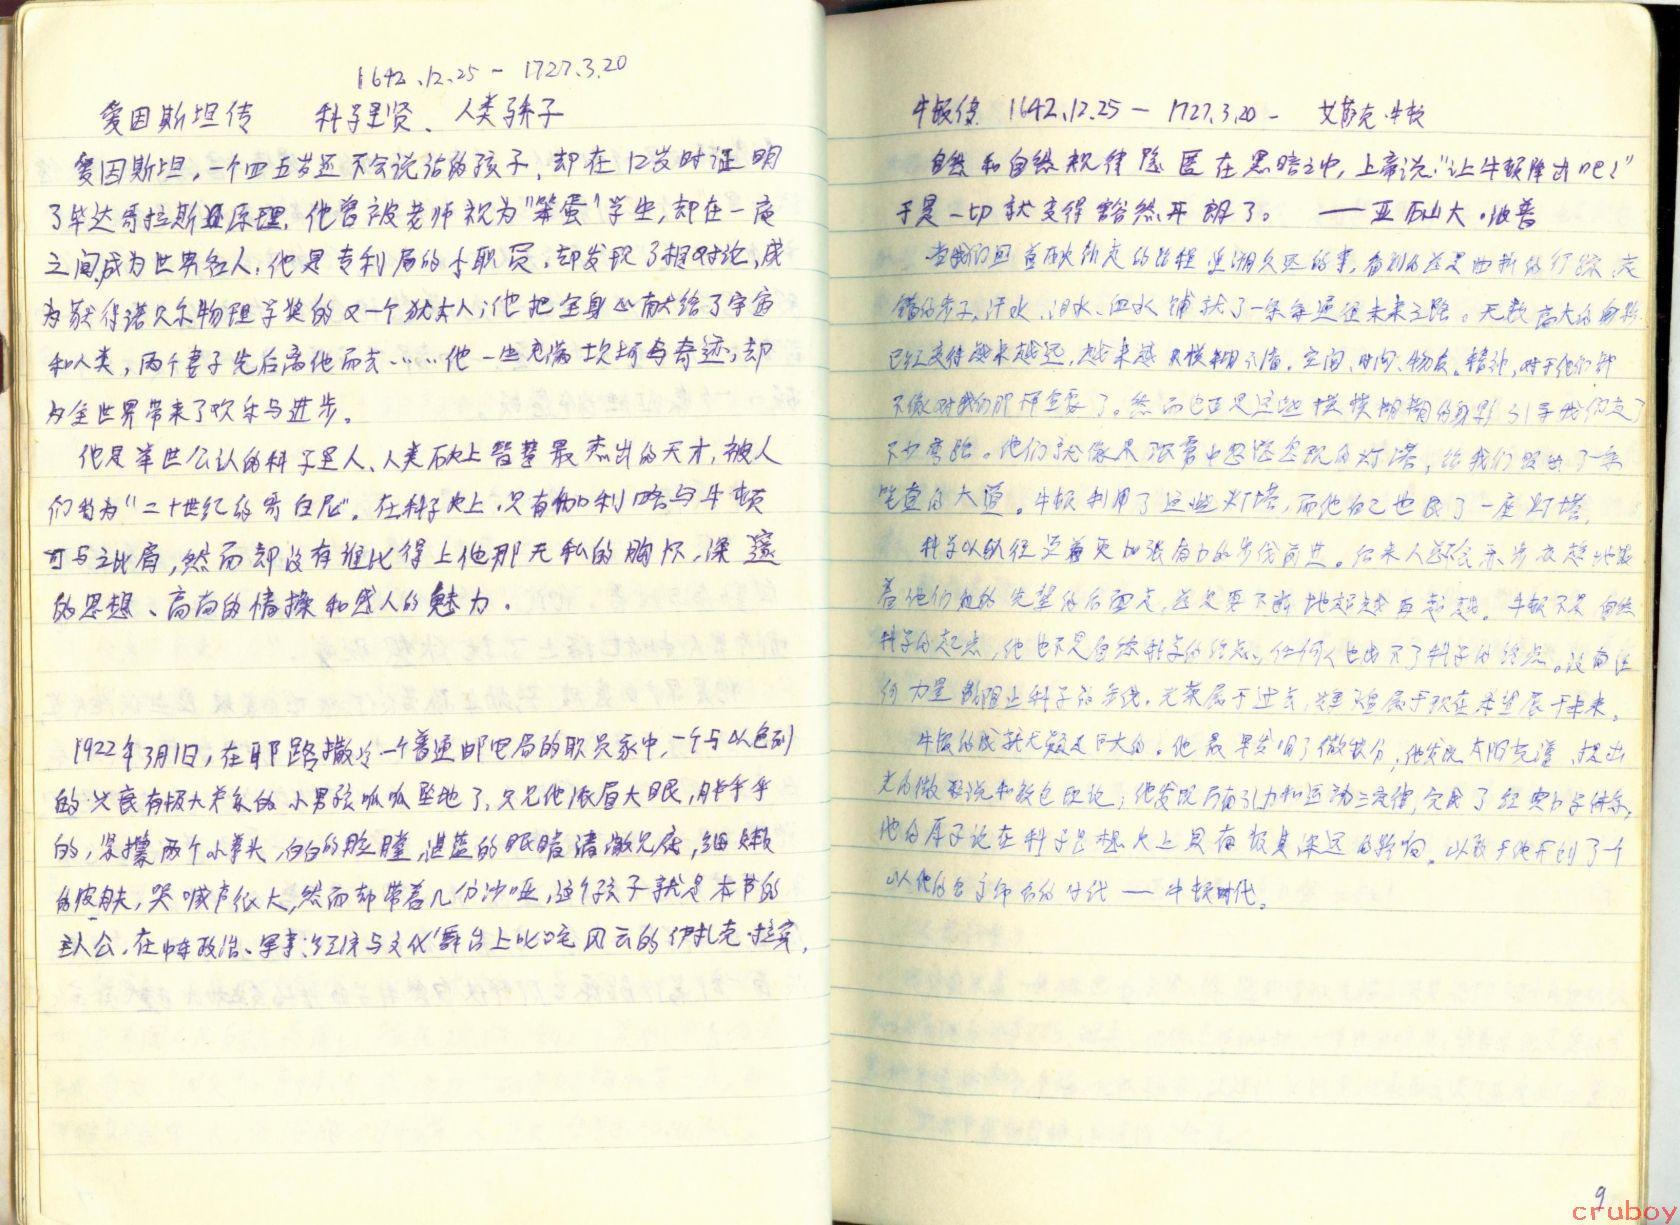 1642.12.25 - 1727.3.20
爱因斯坦传 科学圣贤、人类骄子
爱因斯坦，一个四五岁还不会说话的孩子，却在12岁时证明
了毕达哥拉斯原理，他曾被老师视为"笨蛋"学生，却在一夜
之间成为世界名人，他是专利局的小职员，却发现了相对论，成
为获得诺贝尔物理学奖的又一个犹太人；他把全身心献给了宇宙
和人类，两个妻子先后离他而去……他一生充满坎坷与奇迹，却
为全世界带来了欢乐与进步。
他是举世公认的科学巨人、人类历史上智慧最杰出的天才，被人
们誉为"二十世纪的哥白尼"。在科学史上，只有伽利略与牛顿
可与之比肩，然而却没有谁比得上他那无私的胸怀，深邃
的思想、高尚的情操和感人的魅力。
1922年3月1日，在耶路撒冷一个普通邮电局的职员家中，一个与以色列
的兴衰有极大关系的小男孩呱呱坠地了，只见他浓眉大眼，胖乎乎
的，紧攥两个小拳头，白白的脸膛，湛蓝的眼睛清澈见底，细嫩
的皮肤，哭喊声很大，然而却带着几分沙哑，这个孩子就是本书的
主人公，在中东政治、军事、经济与文化舞台上叱咤风云的伊扎克·拉宾，
牛顿传 1642.12.25 — 1727.3.20 - 艾萨克·牛顿
自然和自然规律隐匿在黑暗之中，上帝说："让牛顿降出吧！"
于是一切就变得豁然开朗了。 ——亚历山大·波普
当我们回首历史所走的路程 追溯久远的事，看到的总是曲折的行踪，走
错的步子，汗水、泪水、血水铺就了一条条通往未来之路。无数高大的身影
已经变得越来越远，越来越模糊不清。空间、时间、物质、精神，对于他们都
不像对我们那样重要了。然而也正是这些模模糊糊的身影引导我们走了
不少弯路。他们就像是浓雾中忽隐忽现的灯塔，给我们照出了一条
笔直的大道。牛顿利用了这些灯塔，而他自己也成了一座灯塔，
科学以 更加强有力的步伐前进。后来人都会亦步亦趋地跟
着他们 的后面走，总是要不断地超越再超越。牛顿不是自然
科学的起点，他也不是自然科学的终点，任何人也成不了科学的终点。没有任
何力量能阻止科学的步伐。光荣属于过去，属于现在，希望属于未来。
牛顿的成就无疑是巨大的。他最早发明了微积分，他发现太阳光谱，提出
光的微粒说和颜色理论；他发现万有引力和运动三定律，完成了经典力学体系，
他的原子论在科学思想史上具有极其深远的影响。以致于他开创了一个
以他的名字命名的时代——牛顿时代。
9
cruboy